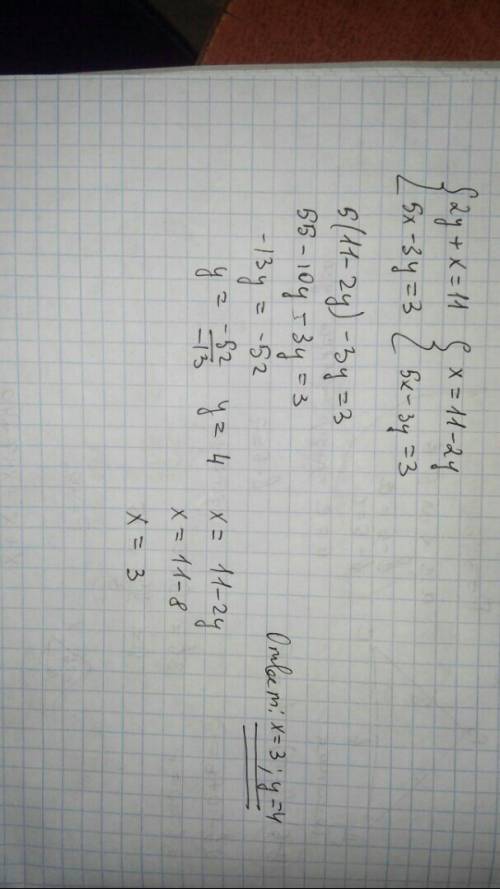 {2y + x = 11 {x = 11 - 2y
{5x - 3y = 3 {5x - 3y = 3
5(11 - 2y) - 3y = 3
55 - 10y - 3y = 3
-13y = -52
y = -52/-13 y = 4
x = 11 - 2y
x = 11 - 8
x = 3
Ответ: x = 3; y = 4